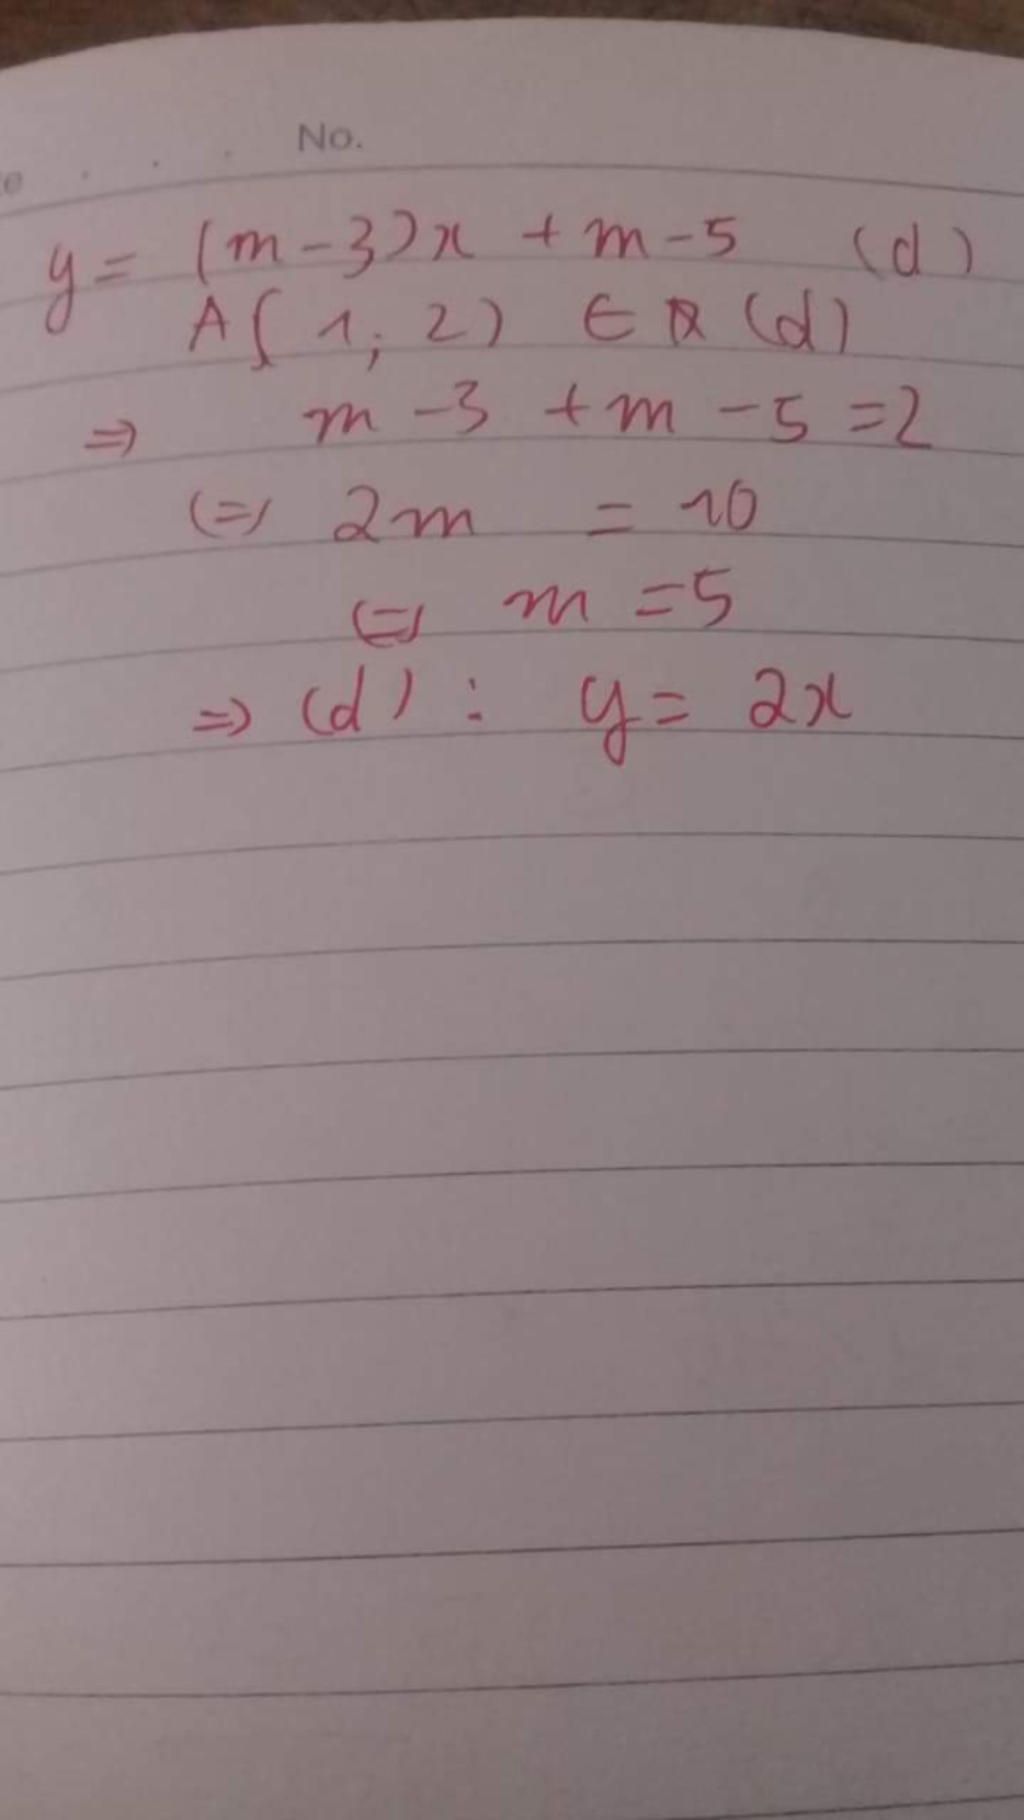 No.
y = (m - 3)x + m - 5 (d)
A( 1; 2) ∈ (d)
=> m - 3 + m - 5 = 2
<=> 2m = 10
<=> m = 5
=> (d) : y = 2x